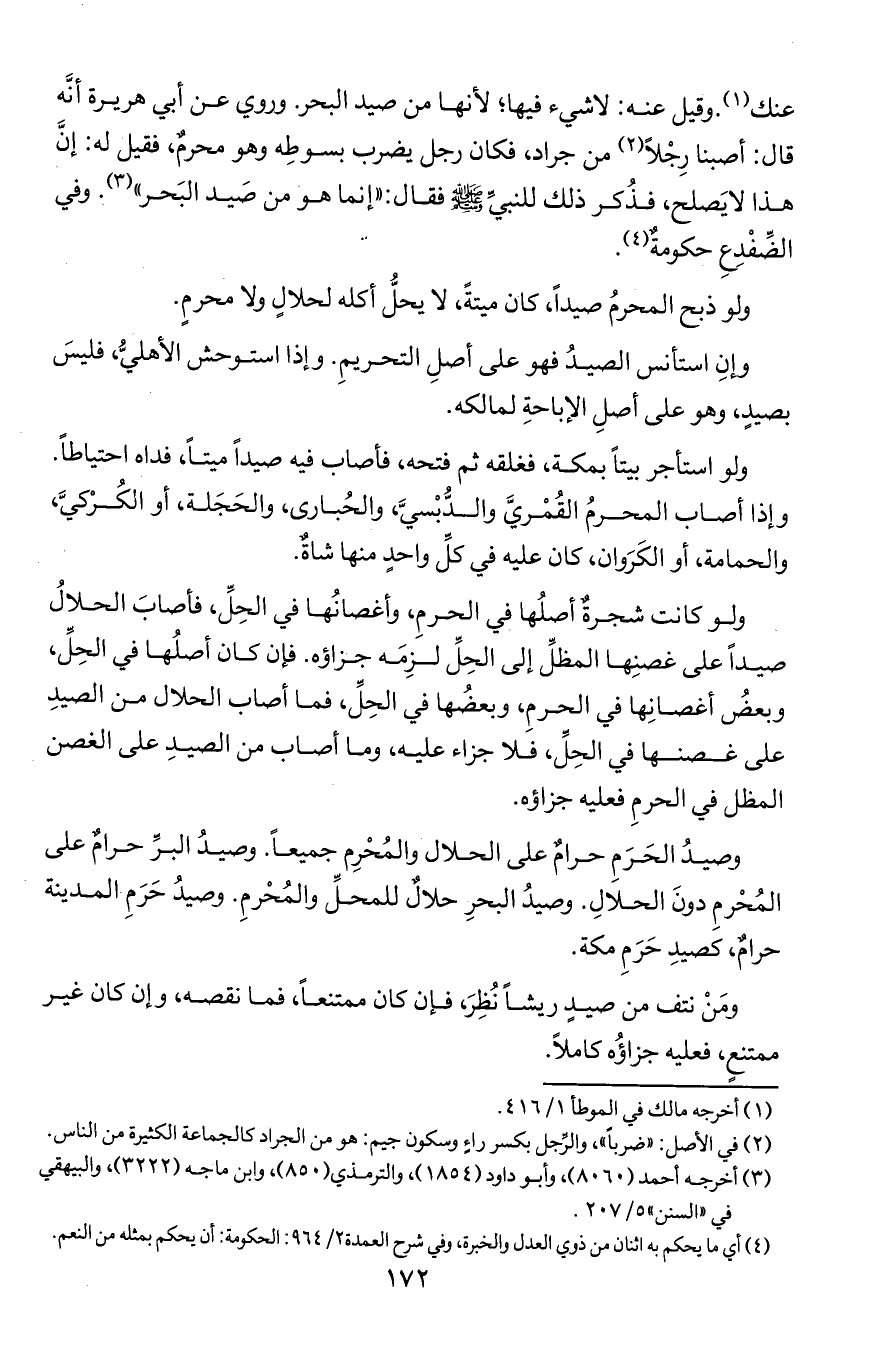 عنك(١).وقيل عنـه: لاشيء فيها؛ لأنهـا من صيد البحر. وروي عـن أبي هريـرة أنَّه
قال: أصبنا رِجْلاً(٢) من جراد، فكان رجل يضرب بسـوطِه وهو محرمٌ، فقيل له: إنَّ
هـذا لايَصلح، فـذُكـر ذلك للنبيِّ ﷺ فقـال:«إنمـا هـو من صَيـد البَحـر»(٣). وفي
الضِّفْدِعِ حكومةٌ(٤).
ولو ذبح المحرمُ صيداً، كان ميتةً، لا يحلُّ أكله لحلالٍ ولا محرمٍ.
وإنِ استأنس الصيـدُ فهو على أصلِ التحريـمِ. وإذا استـوحش الأهليُّ، فليسَ
بصيدٍ، وهو على أصلِ الإباحةِ لمالكه.
ولو استأجر بيتاً بمكـة، فغلقه ثم فتحه، فأصاب فيه صيداً ميتـاً، فداه احتياطاً.
وإذا أصـاب المحـرمُ القُمْـريَّ والـدُّبْسيَّ، والحُبارى، والحَجَلـة، أو الكُـرْكيَّ،
والحمامة، أو الكَرَوان، كان عليه في كلِّ واحدٍ منها شاةٌ.
ولـو كانت شجرةٌ أصلُها في الحرمِ، وأغصانُهـا في الحِلِّ، فأصابَ الحـلالُ
صيـداً على غصنِهـا المظلِّ إلى الحِلِّ لـزِمَـه جـزاؤه. فإن كـان أصلُهـا في الحِلِّ،
وبعضُ أغصـانِها في الحـرمِ، وبعضُها في الحِلِّ، فمـا أصاب الحلال مـن الصيدِ
على غـصنـهـا في الحِلِّ، فـلا جزاء عليـه، ومـا أصـاب من الصيدِ على الغصن
المظل في الحرمِ فعليه جزاؤه.
وصيـدُ الحَـرَمِ حـرامٌ على الحـلال والمُحْرِم جميعـاً. وصيـدُ البـرِّ حـرامٌ على
المُحْرمِ دونَ الحـلالِ. وصيدُ البحرِ حلالٌ للمحـلِّ والمُحْرمِ. وصيدُ حَرَمِ المـدينة
حرامٌ، كَصيدِ حَرَمِ مكة.
ومَنْ نتف من صيـدٍ ريشـاً نُظِرَ، فـإن كان ممتنعـاً، فمـا نقصـه، وإن كان غيـر
ممتنعٍ، فعليه جزاؤُه كاملاً.
(١) أخرجه مالك في الموطأ ١/ ٤١٦.
(٢) في الأصل: «ضرباً»، والرِّجل بكسر راءٍ وسكون جيم: هو من الجراد كالجماعة الكثيرة من الناس.
(٣) أخرجـه أحمد (٨٠٦٠)، وأبـو داود (١٨٥٤)، والترمـذي(٨٥٠)، وابن ماجـه (٣٢٢٢)، والبيهقي
في «السنن»٥/ ٢٠٧ .
(٤) أي ما يحكم به اثنان من ذوي العدل والخبرة، وفي شرح العمدة٢/ ٩٦٤: الحكومة: أن يحكم بمثله من النعم.
١٧٢